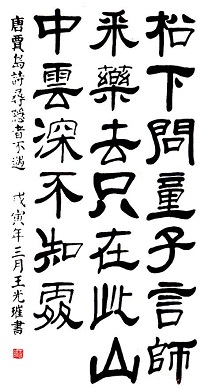 松下問童子言師
采藥去只在此山
中雲深不知處
唐賈島詩尋隱者不遇 戊寅年三月王光璀書